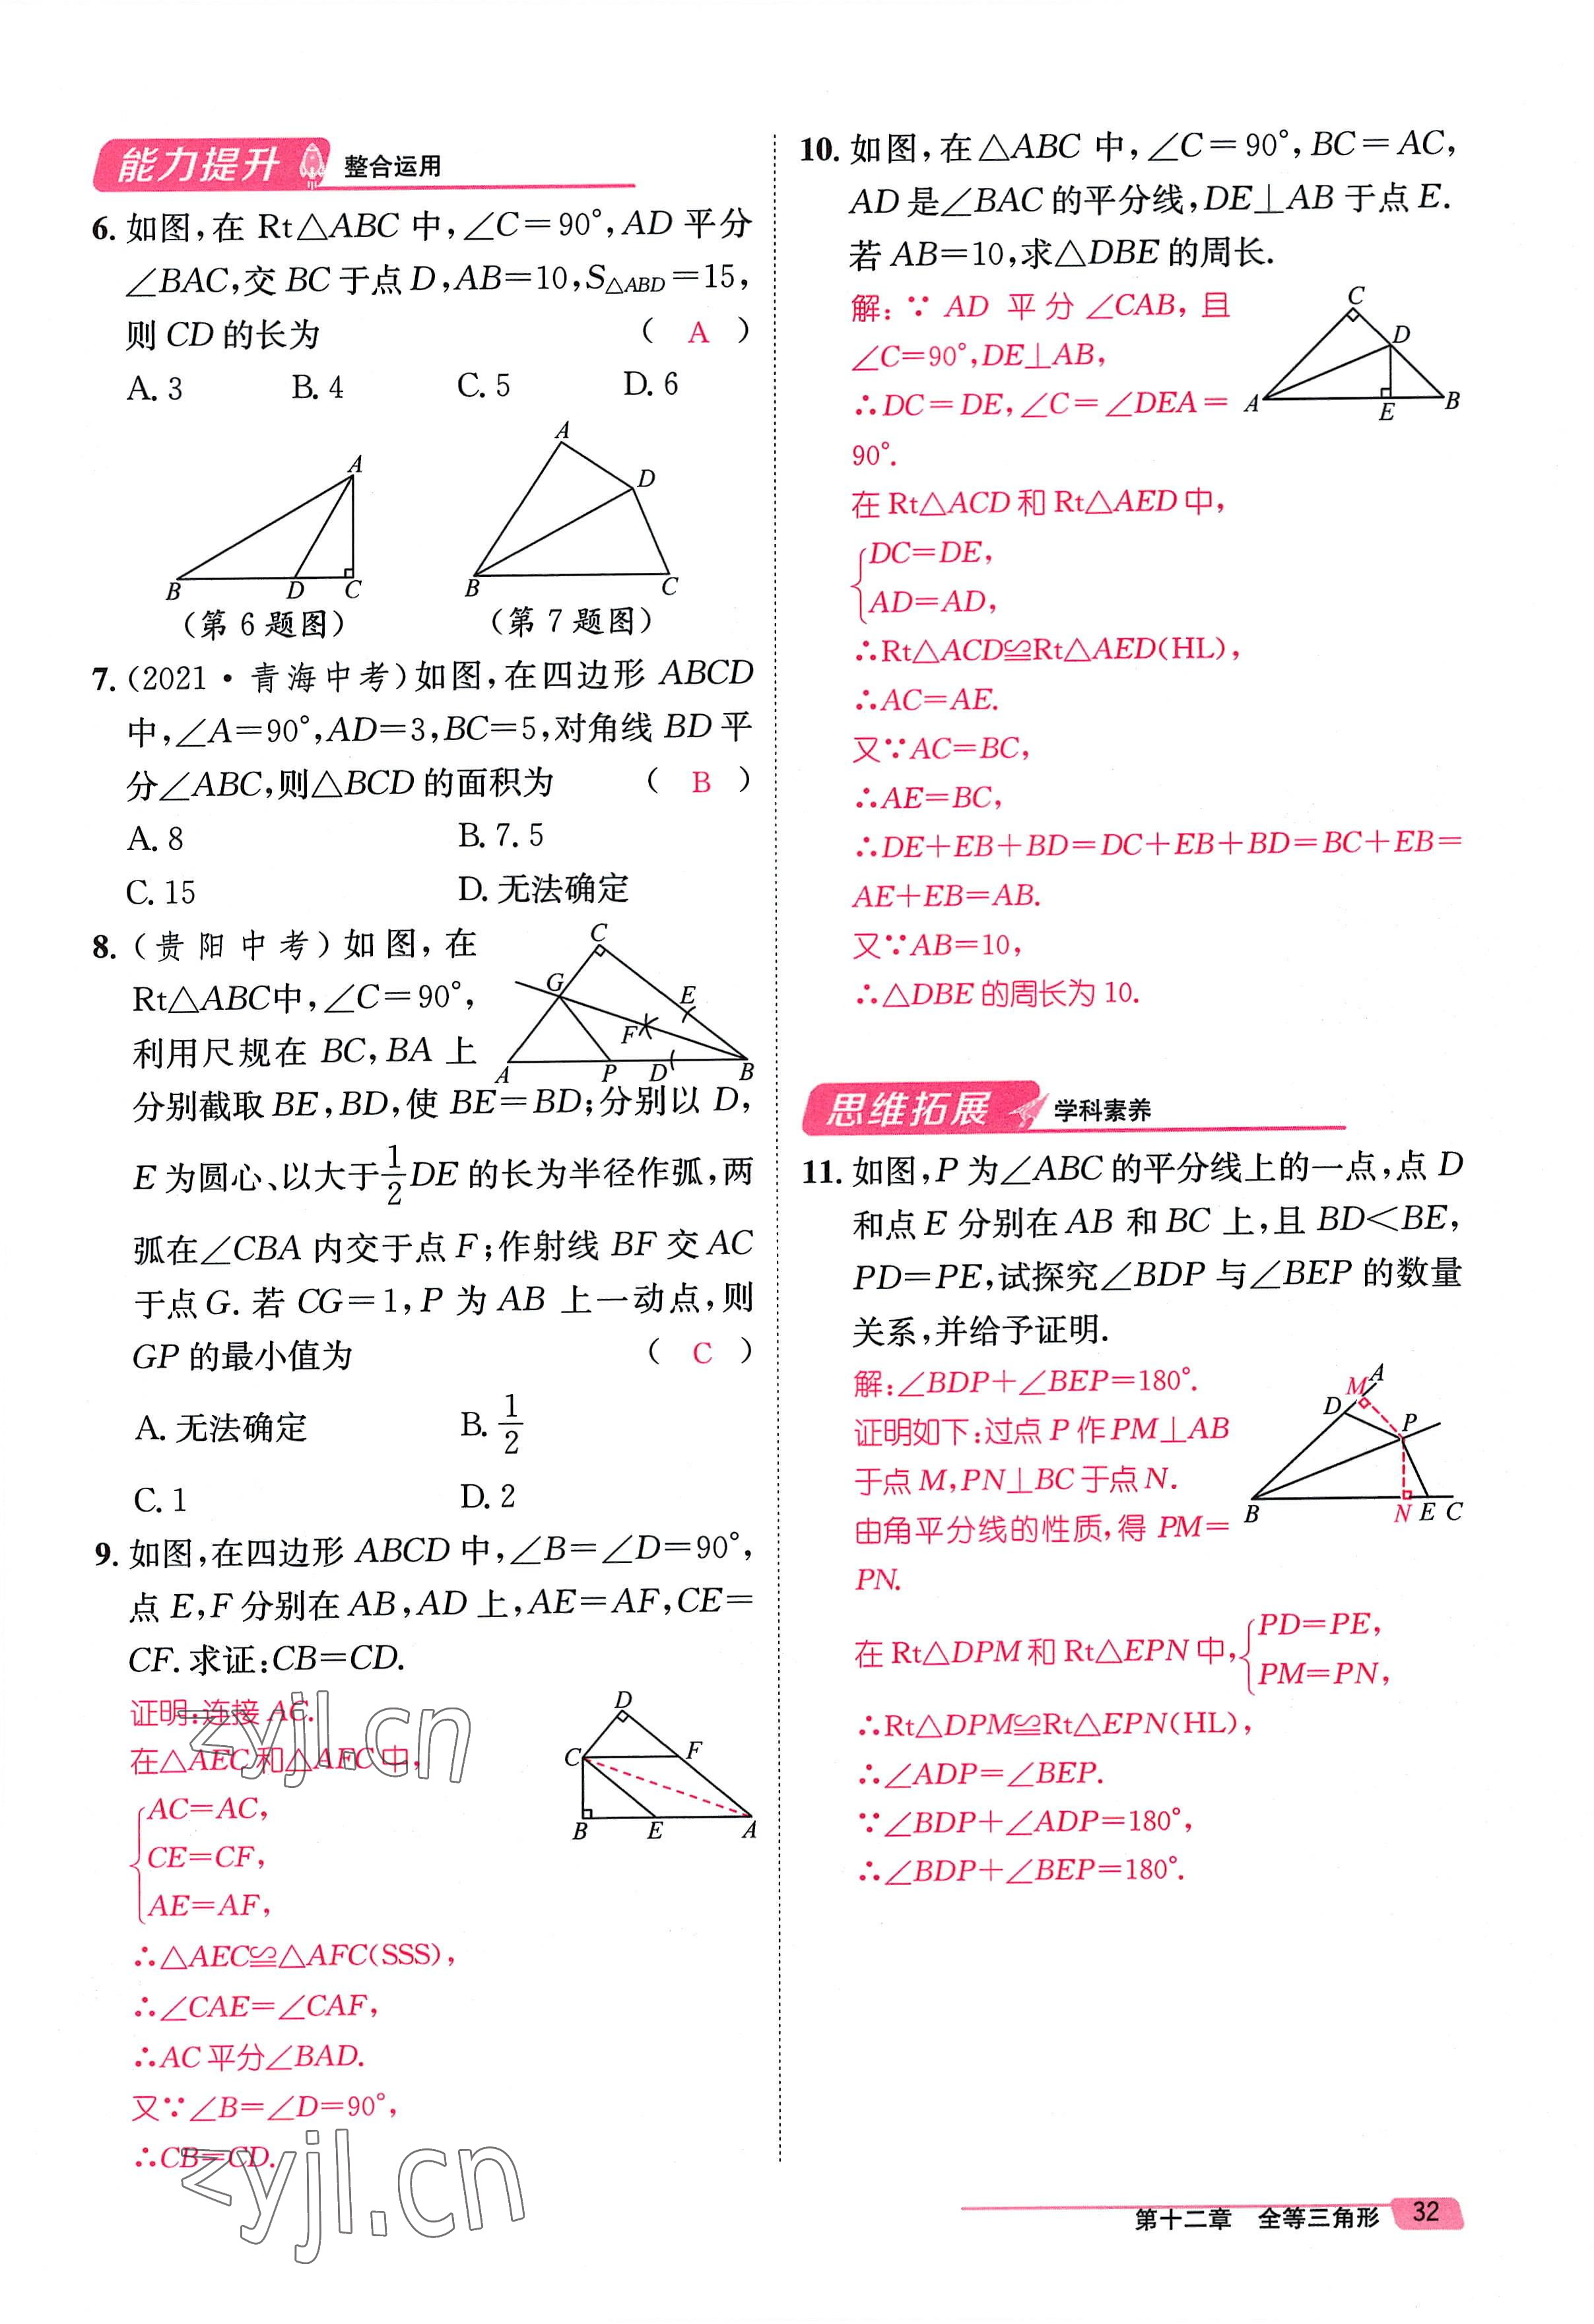 能力提升 整合运用
6. 如图,在 Rt△ABC 中,∠C=90°,AD 平分
∠BAC,交 BC 于点 D,AB=10,S△ABD=15,
则 CD 的长为 ( A )
A. 3 B. 4 C. 5 D. 6
A
B D C
(第 6 题图)
A
D
B C
(第 7 题图)
7. (2021·青海中考)如图,在四边形 ABCD
中,∠A=90°,AD=3,BC=5,对角线 BD 平
分∠ABC,则△BCD 的面积为 ( B )
A. 8 B. 7.5
C. 15 D. 无法确定
8. (贵阳中考)如图,在
Rt△ABC中,∠C=90°,
利用尺规在 BC,BA 上
分别截取 BE,BD,使 BE=BD;分别以 D,
E 为圆心、以大于1/2DE 的长为半径作弧,两
弧在∠CBA 内交于点 F;作射线 BF 交 AC
于点G. 若 CG=1,P 为 AB 上一动点,则
GP 的最小值为 ( C )
C
G E
F
A P D B
A. 无法确定 B. 1/2
C. 1 D. 2
9. 如图,在四边形 ABCD 中,∠B=∠D=90°,
点 E,F 分别在 AB,AD 上,AE=AF,CE=
CF. 求证:CB=CD.
证明:连接 AC.
在△AEC 和△AFC 中,
AC=AC,
CE=CF,
AE=AF,
∴△AEC≌△AFC(SSS),
∴∠CAE=∠CAF,
∴AC 平分∠BAD.
又∵∠B=∠D=90°,
∴CB=CD.
D
C F
B E A
zyjl.cn
zyjl.cn
10. 如图,在△ABC 中,∠C=90°,BC=AC,
AD 是∠BAC 的平分线,DE⊥AB 于点 E.
若 AB=10,求△DBE 的周长.
解:∵ AD 平分∠CAB,且
∠C=90°,DE⊥AB,
∴DC=DE,∠C=∠DEA=
90°.
C
D
A E B
在 Rt△ACD 和 Rt△AED 中,
DC=DE,
AD=AD,
∴Rt△ACD≌Rt△AED(HL),
∴AC=AE.
又∵AC=BC,
∴AE=BC,
∴DE+EB+BD=DC+EB+BD=BC+EB=
AE+EB=AB.
又∵AB=10,
∴△DBE 的周长为 10.
思维拓展 学科素养
11. 如图,P 为∠ABC 的平分线上的一点,点 D
和点 E 分别在 AB 和 BC 上,且 BD<BE,
PD=PE,试探究∠BDP 与∠BEP 的数量
关系,并给予证明.
解:∠BDP+∠BEP=180°.
证明如下:过点 P 作 PM⊥AB
于点 M,PN⊥BC 于点 N.
由角平分线的性质,得 PM=
PN.
A
M
D P
B N E C
在 Rt△DPM 和 Rt△EPN 中,
PD=PE,
PM=PN,
∴Rt△DPM≌Rt△EPN(HL),
∴∠ADP=∠BEP.
∵∠BDP+∠ADP=180°,
∴∠BDP+∠BEP=180°.
第十二章 全等三角形 32